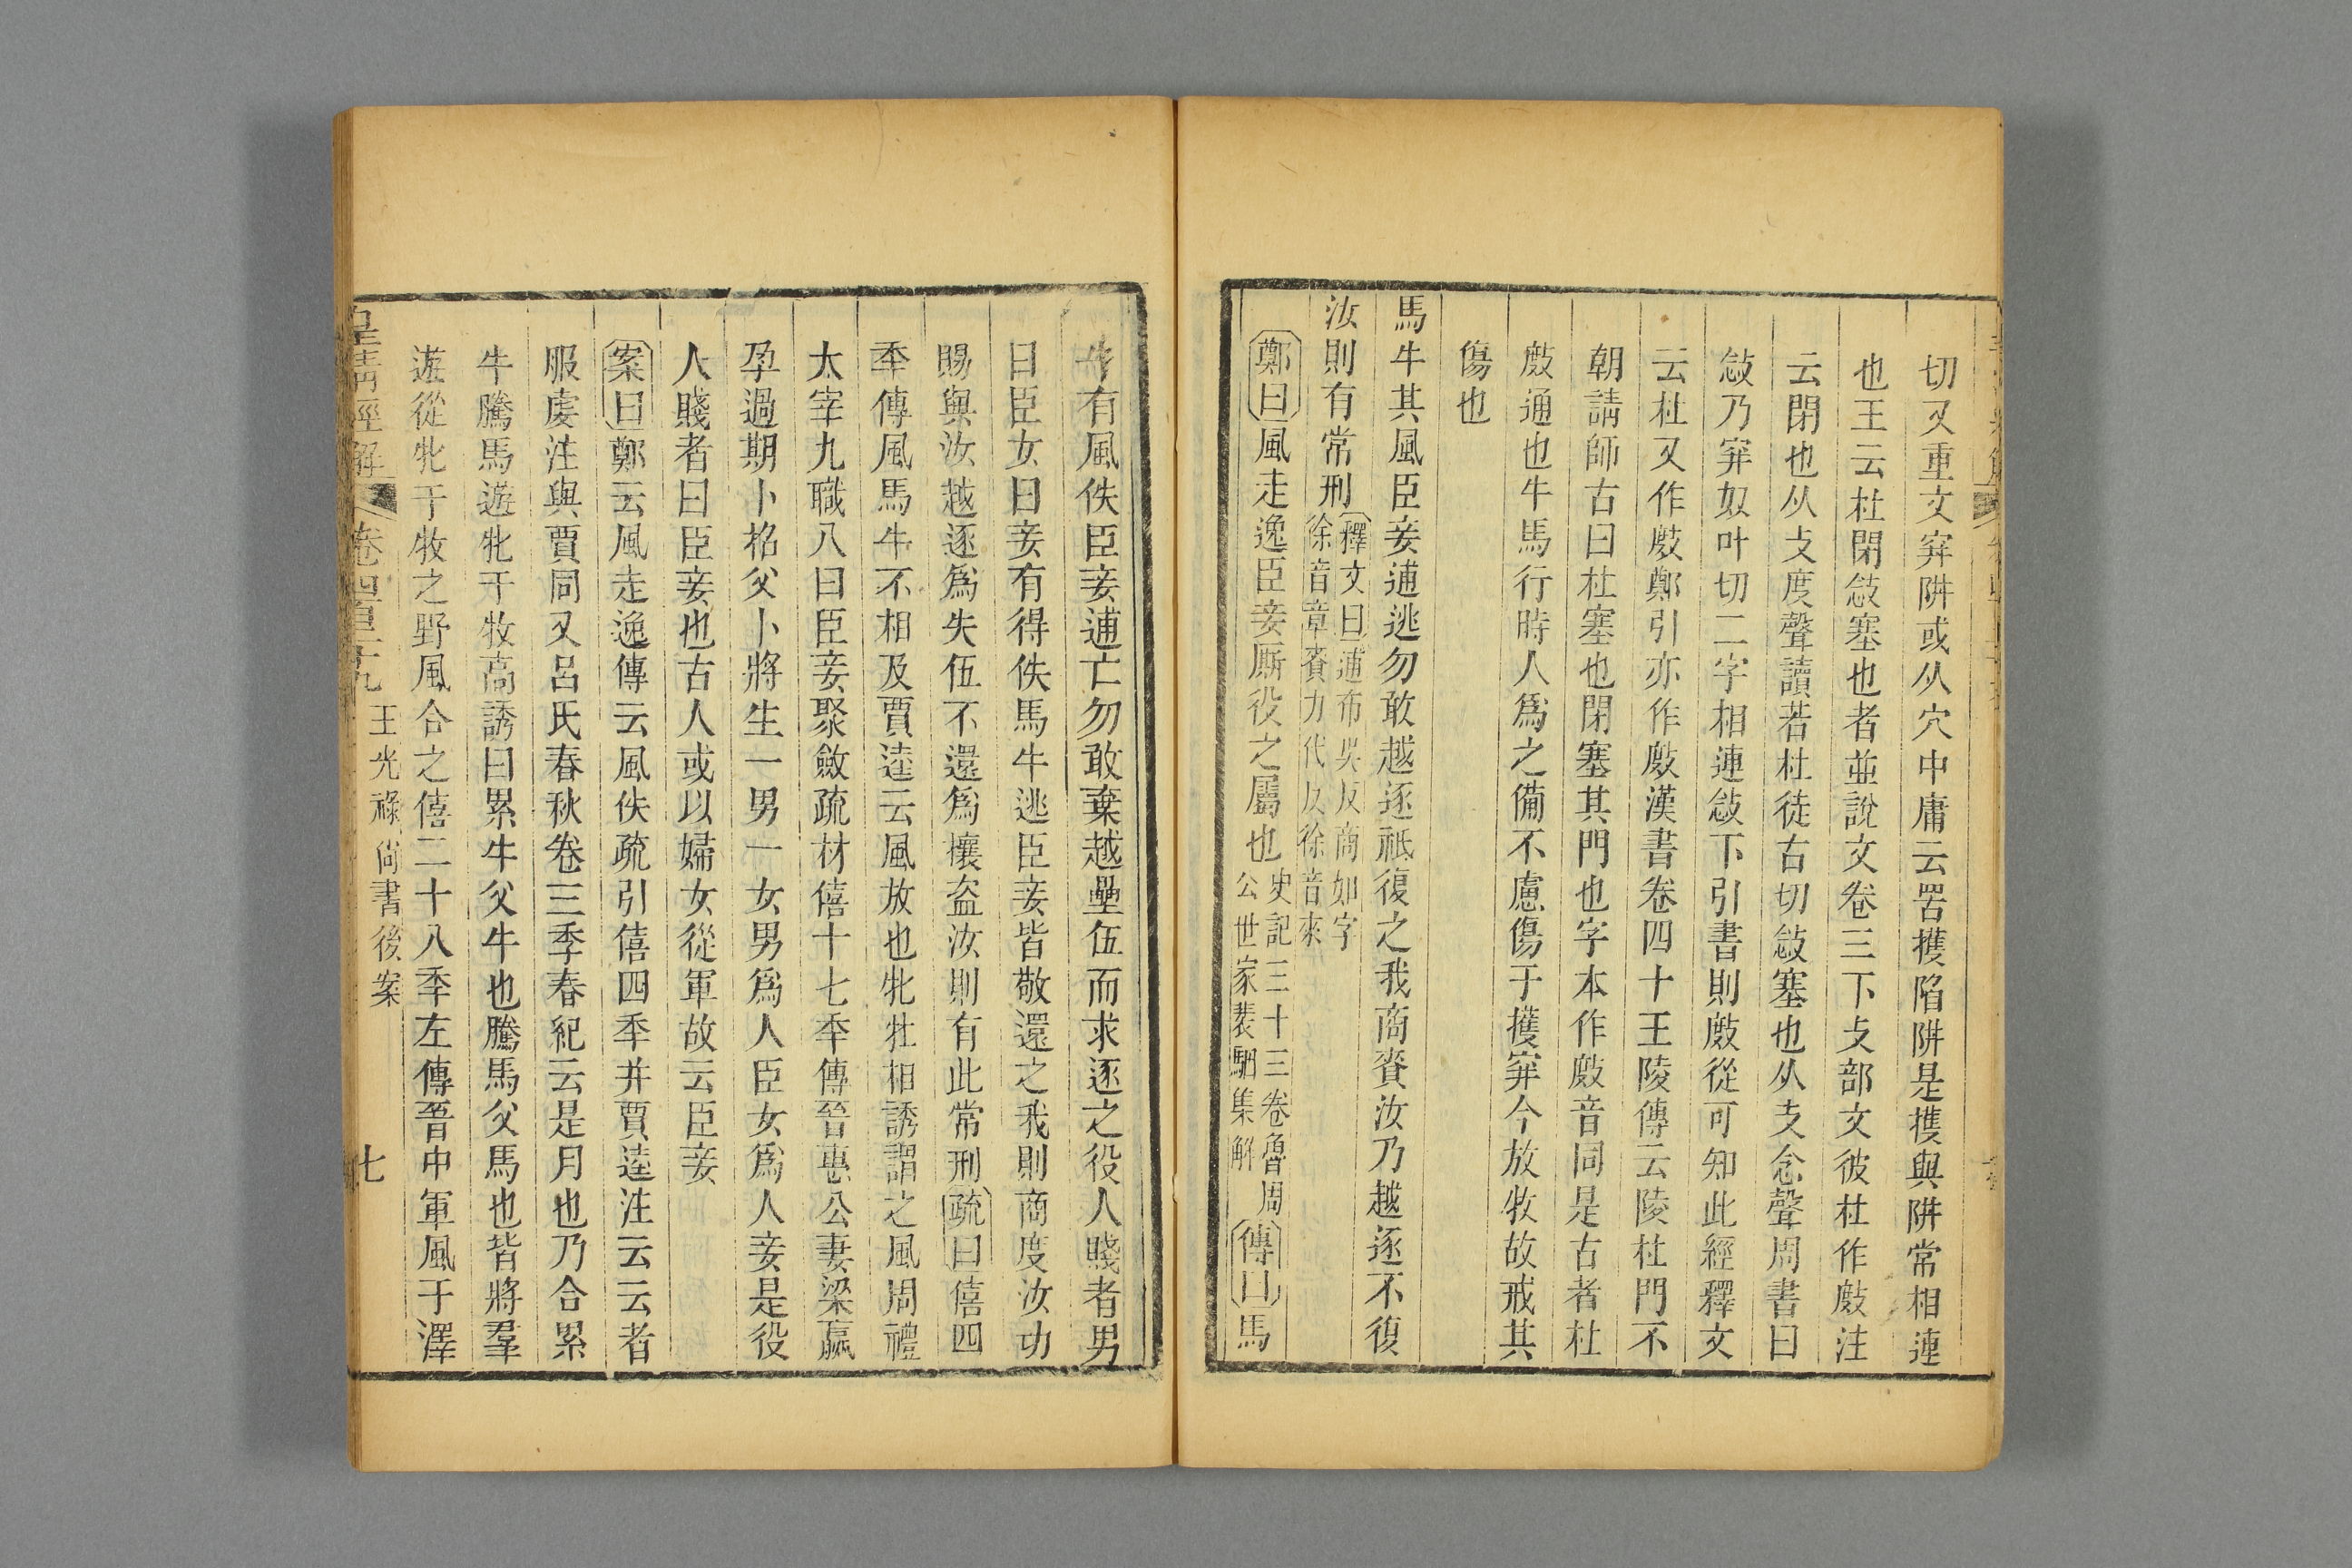 切又重文穽阱或从穴中庸云罟擭陷阱是擭與阱常相連
也王云杜閉敜塞也者並說文卷三下攴部文彼杜作敷注
云閉也从攴度聲讀若杜徒古切敜塞也从攴念聲周書曰
敜乃穽奴叶切二字相連敜下引書則敷從可知此經釋文
云杜又作敷鄭引亦作敷漢書卷四十王陵傳云陵杜門不
朝請師古曰杜塞也閉塞其門也字本作敷音同是古者杜
敷通也牛馬行時人爲之備不慮傷于擭穽今放牧故戒其
傷也
馬牛其風臣妾逋逃勿敢越逐祗復之我商賚汝乃越逐不復
汝則有常刑釋文曰逋布吳反商如字
徐音章賚力代反徐音來
鄭曰風走逸臣妾厮役之屬也史記三十三卷魯周
公世家裴駰集解
傳曰馬
牛有風佚臣妾逋亡勿敢棄越壘伍而求逐之役人賤者男
曰臣女曰妾有得佚馬牛逃臣妾皆敬還之我則商度汝功
賜與汝越逐爲失伍不還爲攘盗汝則有此常刑疏曰僖四
秊傳風馬牛不相及賈逵云風放也牝牡相誘謂之風周禮
太宰九職八曰臣妾聚斂疏材僖十七秊傳晉惠公妻梁嬴
孕過期卜招父卜將生一男一女男爲人臣女爲人妾是役
人賤者曰臣妾也古人或以婦女從軍故云臣妾
案曰鄭云風走逸傳云風佚疏引僖四秊并賈逵注云云者
服虔注與賈同又呂氏春秋卷三季春紀云是月也乃合累
牛騰馬遊牝于牧高誘曰累牛父牛也騰馬父馬也皆將羣
遊從牝于牧之野風合之僖二十八秊左傳晉中軍風于澤
皇清經解 卷四百二十九 王光祿尚書後案 七